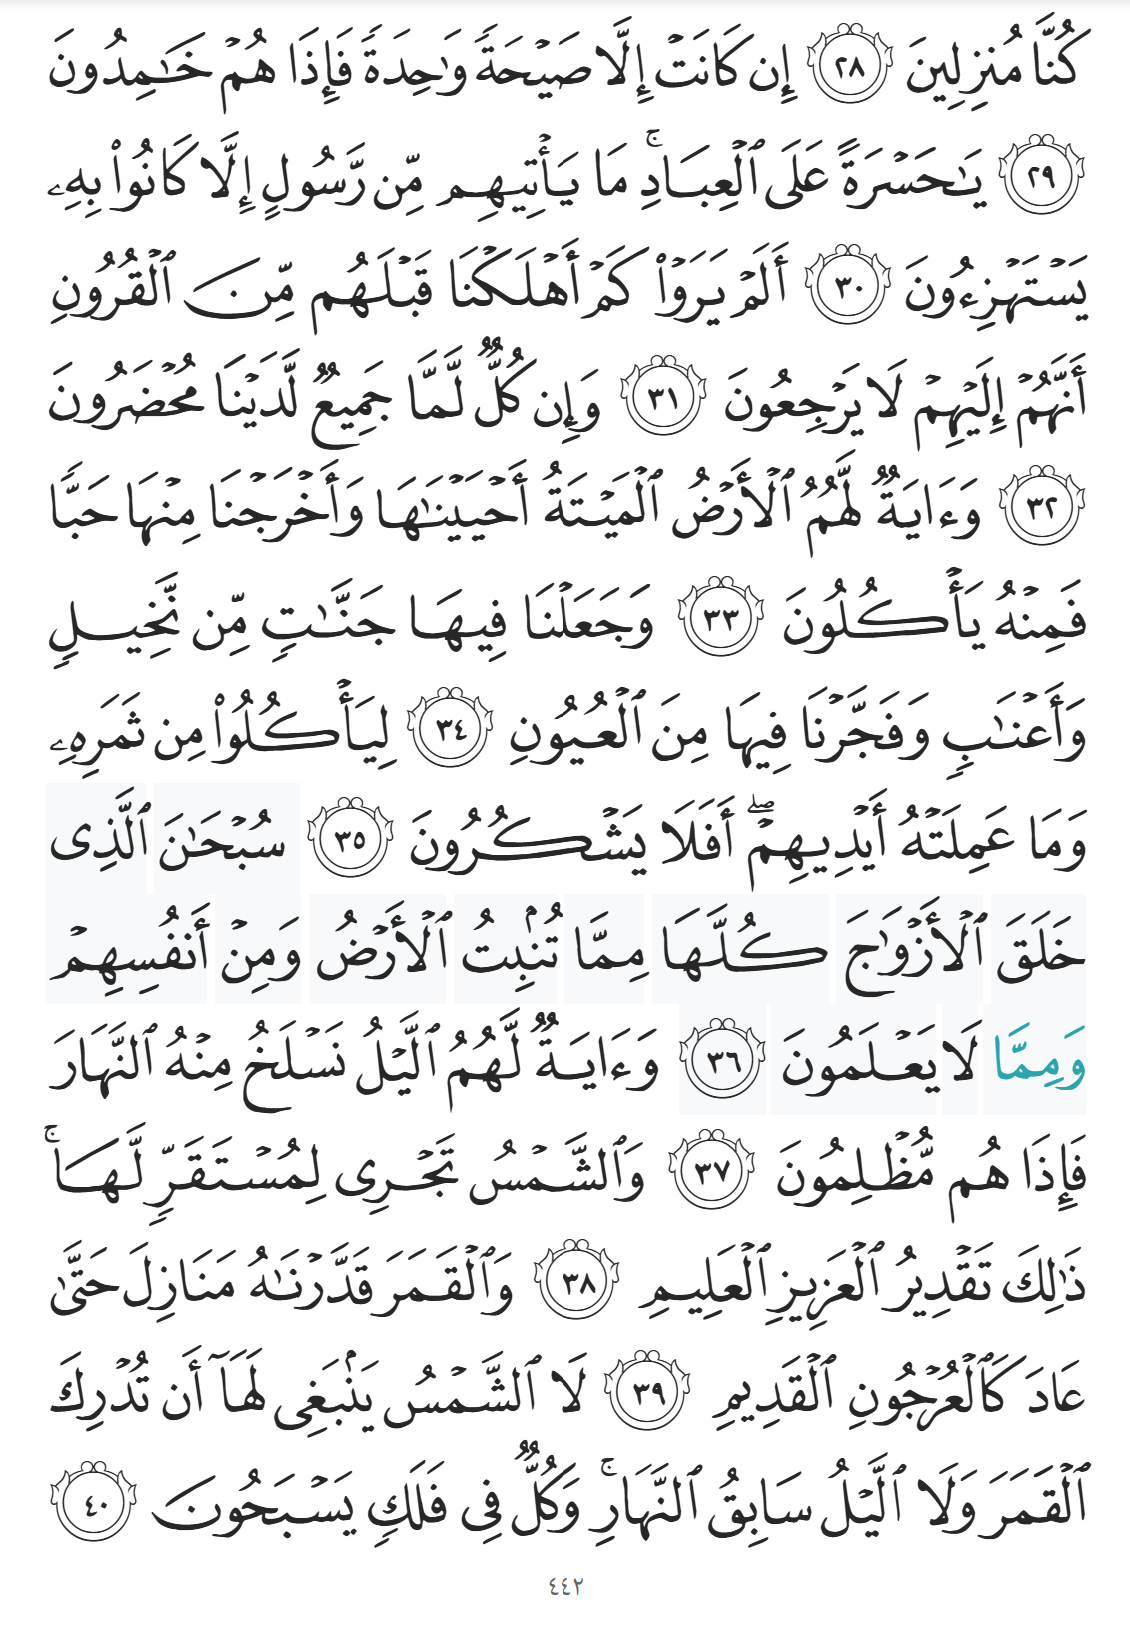 كُنَّا مُنزِلِينَ ٢٨ إِن كَانَتْ إِلَّا صَيْحَةً وَٰحِدَةً فَإِذَا هُمْ خَـٰمِدُونَ
٢٩ يَـٰحَسْرَةً عَلَى ٱلْعِبَادِ ۚ مَا يَأْتِيهِم مِّن رَّسُولٍ إِلَّا كَانُوا۟ بِهِۦ
يَسْتَهْزِءُونَ ٣٠ أَلَمْ يَرَوْا۟ كَمْ أَهْلَكْنَا قَبْلَهُم مِّنَ ٱلْقُرُونِ
أَنَّهُمْ إِلَيْهِمْ لَا يَرْجِعُونَ ٣١ وَإِن كُلٌّ لَّمَّا جَمِيعٌ لَّدَيْنَا مُحْضَرُونَ
٣٢ وَءَايَةٌ لَّهُمُ ٱلْأَرْضُ ٱلْمَيْتَةُ أَحْيَيْنَـٰهَا وَأَخْرَجْنَا مِنْهَا حَبًّا
فَمِنْهُ يَأْكُلُونَ ٣٣ وَجَعَلْنَا فِيهَا جَنَّـٰتٍ مِّن نَّخِيلٍ
وَأَعْنَـٰبٍ وَفَجَّرْنَا فِيهَا مِنَ ٱلْعُيُونِ ٣٤ لِيَأْكُلُوا۟ مِن ثَمَرِهِۦ
وَمَا عَمِلَتْهُ أَيْدِيهِمْ ۖ أَفَلَا يَشْكُرُونَ ٣٥ سُبْحَـٰنَ ٱلَّذِى
خَلَقَ ٱلْأَزْوَٰجَ كُلَّهَا مِمَّا تُنۢبِتُ ٱلْأَرْضُ وَمِنْ أَنفُسِهِمْ
وَمِمَّا لَا يَعْلَمُونَ ٣٦ وَءَايَةٌ لَّهُمُ ٱلَّيْلُ نَسْلَخُ مِنْهُ ٱلنَّهَارَ
فَإِذَا هُم مُّظْلِمُونَ ٣٧ وَٱلشَّمْسُ تَجْرِى لِمُسْتَقَرٍّ لَّهَا ۚ
ذَٰلِكَ تَقْدِيرُ ٱلْعَزِيزِ ٱلْعَلِيمِ ٣٨ وَٱلْقَمَرَ قَدَّرْنَـٰهُ مَنَازِلَ حَتَّىٰ
عَادَ كَٱلْعُرْجُونِ ٱلْقَدِيمِ ٣٩ لَا ٱلشَّمْسُ يَنۢبَغِى لَهَآ أَن تُدْرِكَ
ٱلْقَمَرَ وَلَا ٱلَّيْلُ سَابِقُ ٱلنَّهَارِ ۚ وَكُلٌّ فِى فَلَكٍ يَسْبَحُونَ ٤٠
٤٤٢